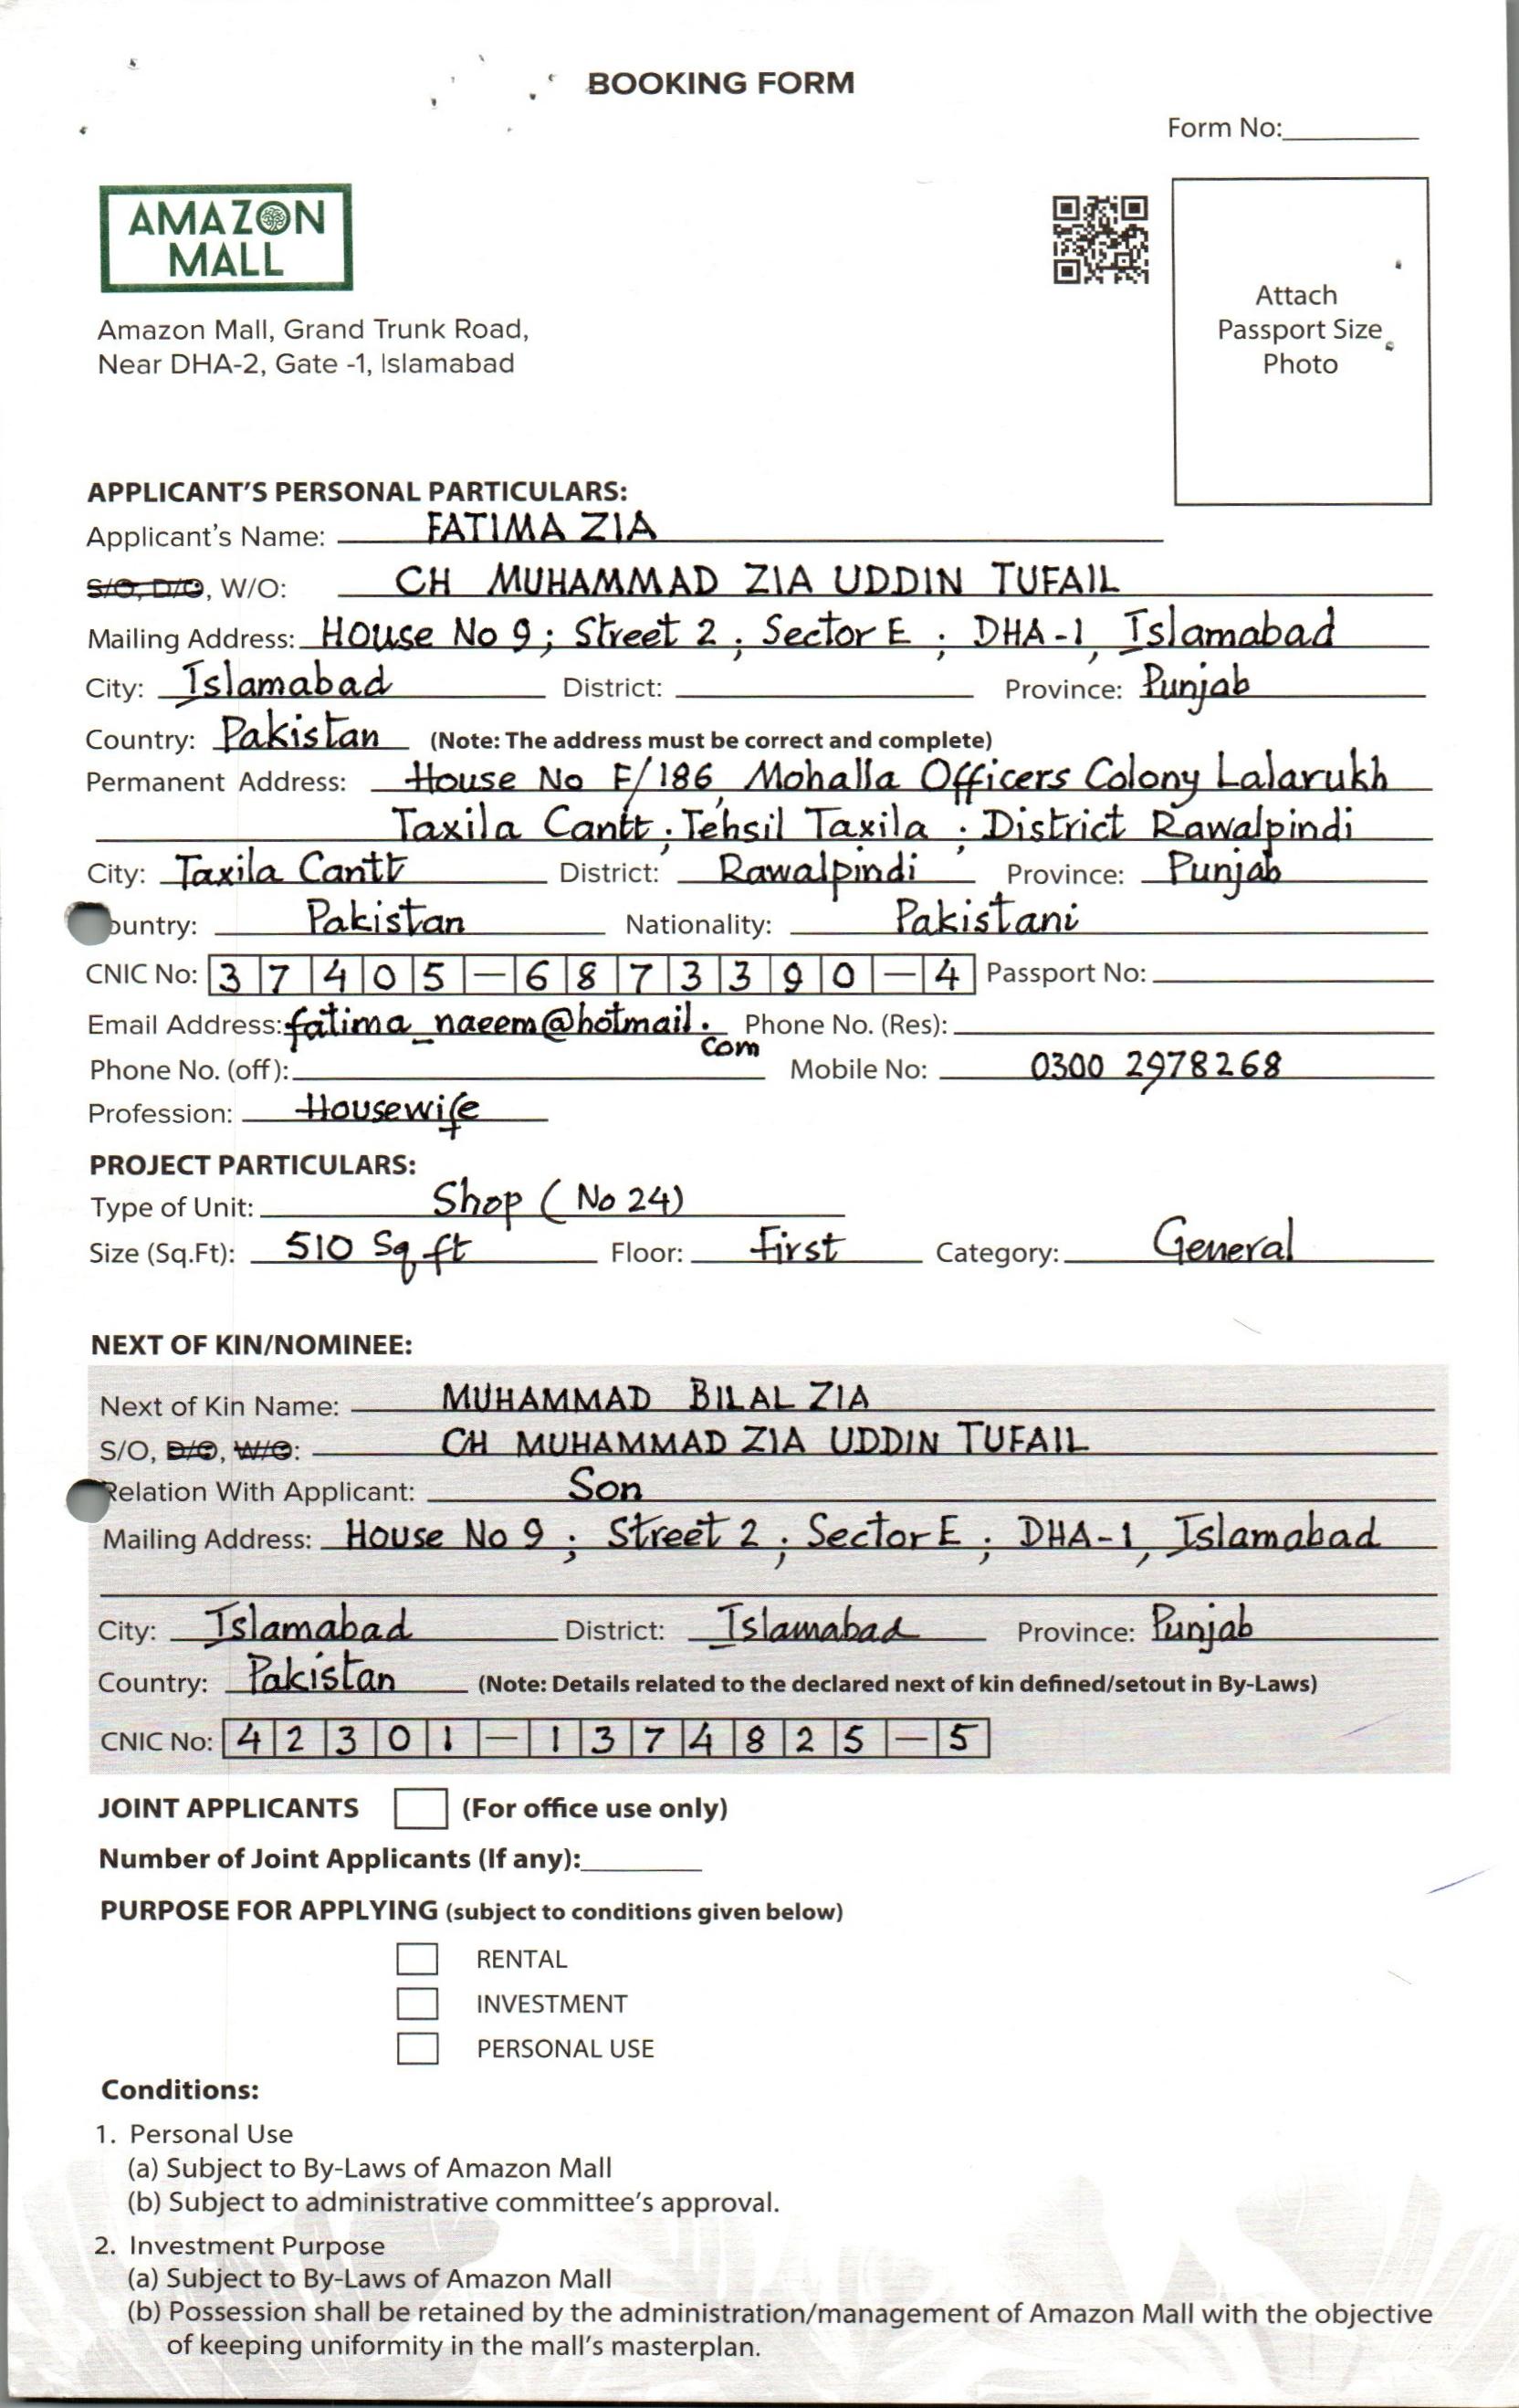 BOOKING FORM
Form No:
AMAZON
MALL
Amazon Mall, Grand Trunk Road,
Near DHA-2, Gate -1, Islamabad
Attach
Passport Size
Photo
APPLICANT'S PERSONAL PARTICULARS:
Applicant's Name: FATIMA ZIA
S/O, D/O, W/O: CH MUHAMMAD ZIA UDDIN TUFAIL
Mailing Address: House No 9; Street 2; Sector E; DHA-1, Islamabad
City: Islamabad District: Province: Punjab
Country: Pakistan (Note: The address must be correct and complete)
Permanent Address: House No F/186, Mohalla Officers Colony Lalarukh
Taxila Cantt; Tehsil Taxila; District Rawalpindi
City: Taxila Cantt District: Rawalpindi Province: Punjab
ountry: Pakistan Nationality: Pakistani
CNIC No: 37405-6873390-4 Passport No:
Email Address: fatima_naeem@hotmail. Phone No. (Res):
com
Phone No. (off): Mobile No: 0300 2978268
Profession: Housewife
PROJECT PARTICULARS:
Type of Unit: Shop (No 24)
Size (Sq.Ft): 510 Sq ft Floor: First Category: General
NEXT OF KIN/NOMINEE:
Next of Kin Name: MUHAMMAD BILAL ZIA
S/O, D/O, W/O: CH MUHAMMAD ZIA UDDIN TUFAIL
Relation With Applicant: Son
Mailing Address: House No 9; Street 2; Sector E; DHA-1, Islamabad
City: Islamabad District: Islamabad Province: Punjab
Country: Pakistan (Note: Details related to the declared next of kin defined/setout in By-Laws)
CNIC No: 42301-1374825-5
JOINT APPLICANTS (For office use only)
Number of Joint Applicants (If any):
PURPOSE FOR APPLYING (subject to conditions given below)
RENTAL
INVESTMENT
PERSONAL USE
Conditions:
1. Personal Use
(a) Subject to By-Laws of Amazon Mall
(b) Subject to administrative committee's approval.
2. Investment Purpose
(a) Subject to By-Laws of Amazon Mall
(b) Possession shall be retained by the administration/management of Amazon Mall with the objective
of keeping uniformity in the mall's masterplan.